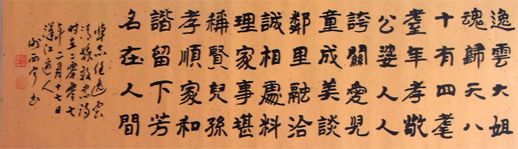 逸雲大姐
魂歸天八
十有四耄
耋年孝敬
公婆人人
誇關愛見
童成美談
鄰里融洽
誠相處料
理家事堪
稱賢兒孫
孝順家和
諧留下芳
名在人間
悼念任逸雲
时在二零零七
年二月十七日